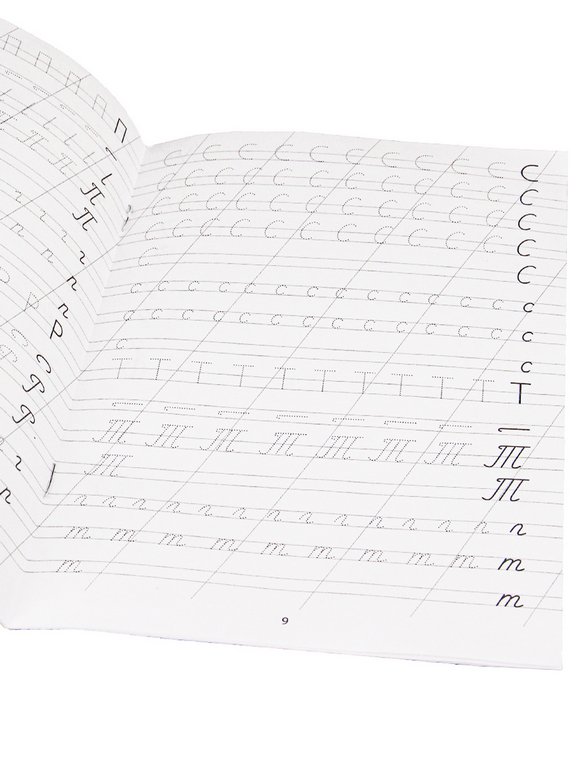 П П П П П П
П
П
г
п
п
р
С
Р
Р
г
п
С С С С С С С С С С С
С С С С С С С С С С С
С С С С С С С С С С С
С С С С С С С С С С С
С С
с с с с с с с с с с с с с с
с с с с с с с с с с с с с с
с с
Т Т Т Т Т Т Т Т Т Т Т
Т Т Т Т Т Т Т Т
Т Т
г г г г г г г г г г г г г г г
т т т т т т т т т т
т т
9